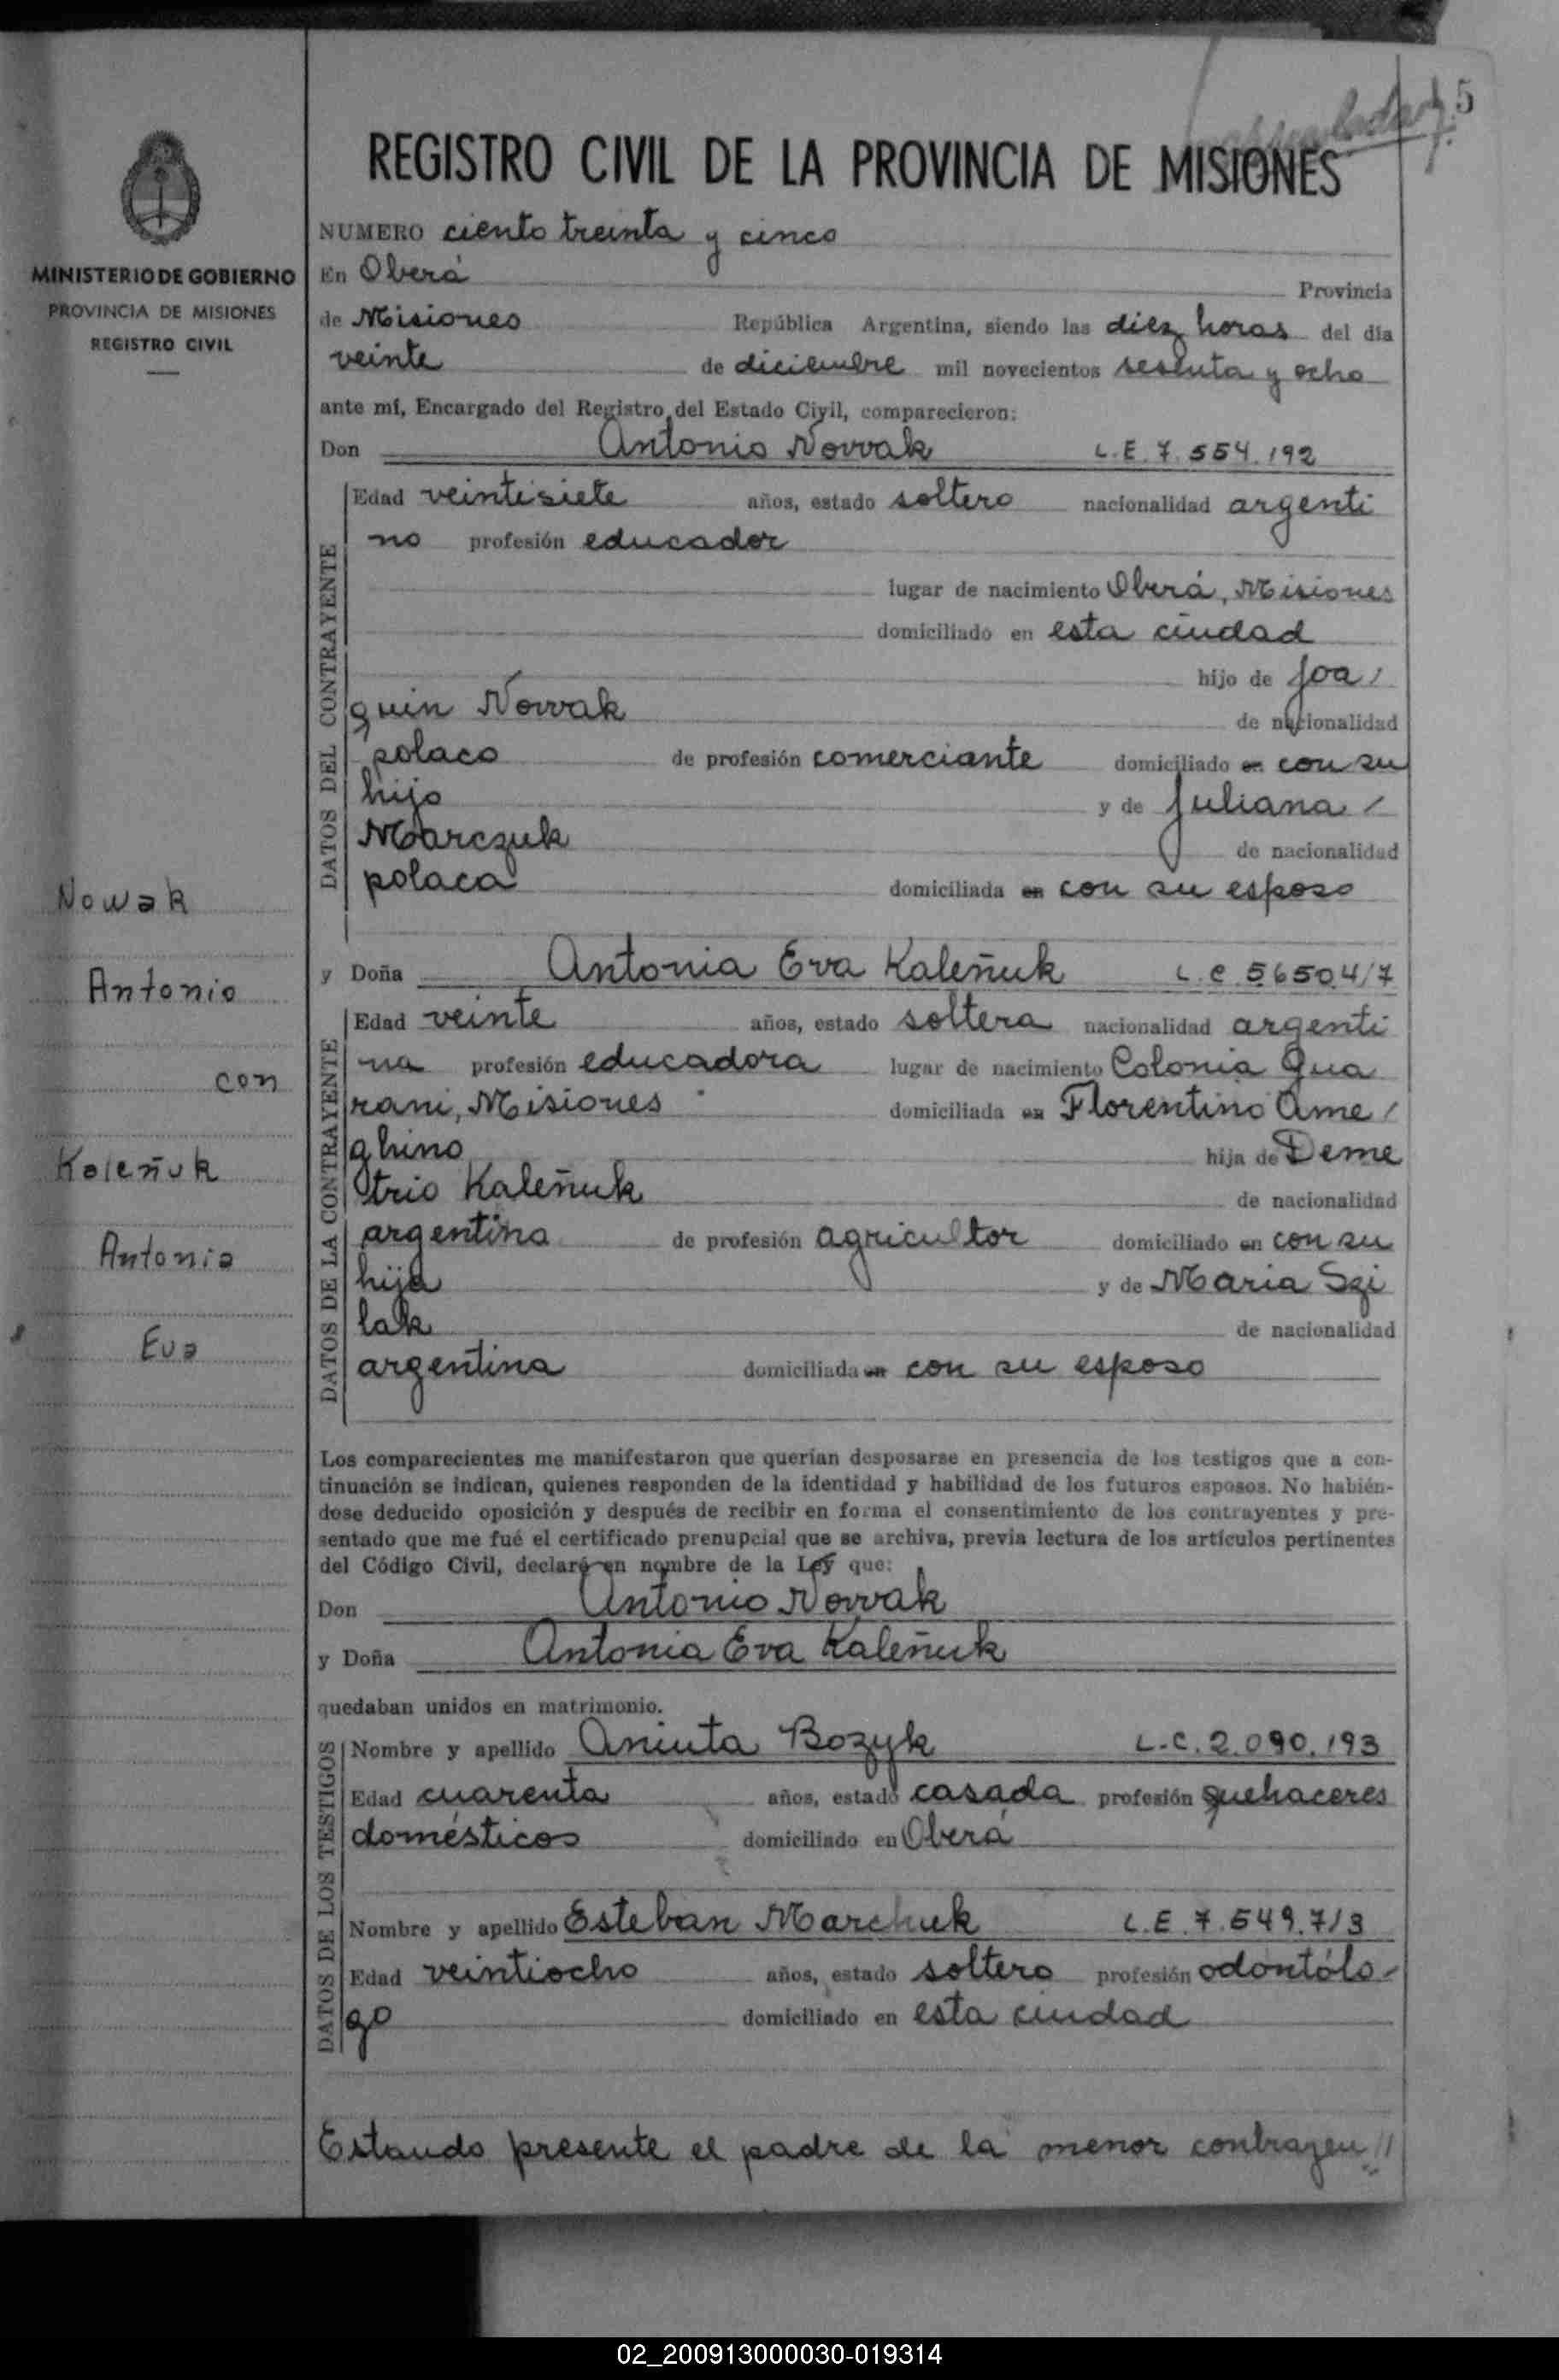 5
REGISTRO CIVIL DE LA PROVINCIA DE MISIONES
MINISTERIO DE GOBIERNO
PROVINCIA DE MISIONES
REGISTRO CIVIL
NUMERO ciento treinta y cinco
En Oberá Provincia
de Misiones República Argentina, siendo las diez horas del día
veinte de diciembre mil novecientos sesenta y ocho
ante mí, Encargado del Registro del Estado Civil, comparecieron:
Don Antonio Nowak L.E. 7.554.192
DATOS DEL CONTRAYENTE
Edad veintisiete años, estado soltero nacionalidad argenti
no profesión educador
lugar de nacimiento Oberá, Misiones
domiciliado en esta ciudad
hijo de Joa/
quin Nowak de nacionalidad
polaco de profesión comerciante domiciliado en con su
hijo y de Juliana /
Marczuk de nacionalidad
polaca domiciliada en con su esposo
Nowak
Antonio
con
Koleñuk
Antonia
Eva
y Doña Antonia Eva Kaleñuk L.C. 565041/7
DATOS DE LA CONTRAYENTE
Edad veinte años, estado soltera nacionalidad argenti
na profesión educadora lugar de nacimiento Colonia Gua
rani, Misiones domiciliada en Florentino Ame/
ghino hija de Deme
trio Kaleñuk de nacionalidad
argentina de profesión agricultor domiciliado en con su
hija y de Maria Szi
lak de nacionalidad
argentina domiciliada en con su esposo
Los comparecientes me manifestaron que querían desposarse en presencia de los testigos que a con-
tinuación se indican, quienes responden de la identidad y habilidad de los futuros esposos. No habién-
dose deducido oposición y después de recibir en forma el consentimiento de los contrayentes y pre-
sentado que me fué el certificado prenupcial que se archiva, previa lectura de los artículos pertinentes
del Código Civil, declaré en nombre de la Ley que:
Don Antonio Nowak
y Doña Antonia Eva Kaleñuk
quedaban unidos en matrimonio.
DATOS DE LOS TESTIGOS
Nombre y apellido Aniuta Bozyk L.C. 2.090.193
Edad cuarenta años, estado casada profesión quehaceres
domésticos domiciliado en Oberá
Nombre y apellido Esteban Marchuk L.E. 7.549.713
Edad veintiocho años, estado soltero profesión odontólo-
go domiciliado en esta ciudad
Estando presente el padre de la menor contrayen//
02_200913000030-019314